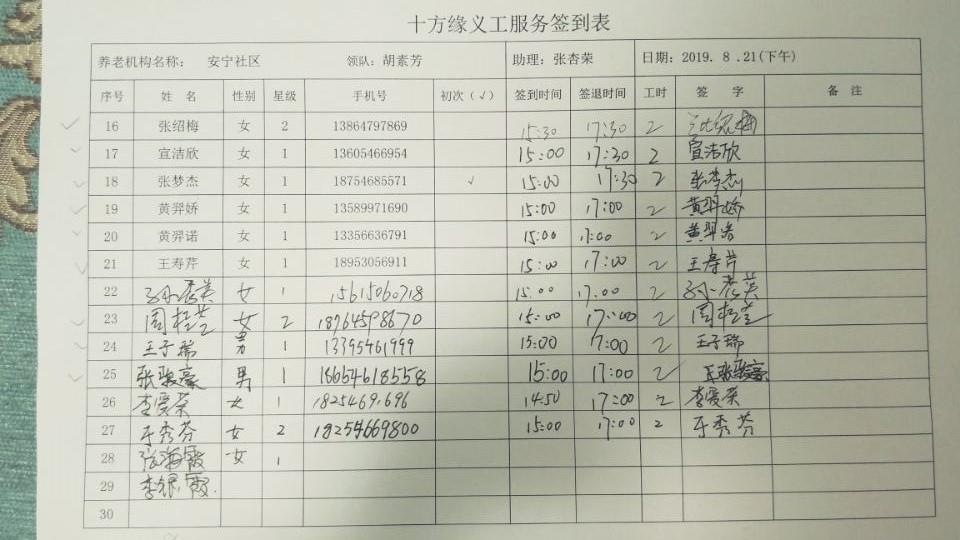 十方缘义工服务签到表
养老机构名称: 安宁社区 领队: 胡素芳 助理: 张杏荣 日期: 2019. 8 .21(下午)
序号 姓 名 性别 星级 手机号 初次（√） 签到时间 签退时间 工时 签 字 备 注
16 张绍梅 女 2 13864797869 15:30 17:30 2 张绍梅
17 宣洁欣 女 1 13605466954 15:00 17:30 2 宣洁欣
18 张梦杰 女 1 18754685571 √ 15:00 17:30 2 张梦杰
19 黄羿娇 女 1 13589971690 15:00 17:00 2 黄羿娇
20 黄羿诺 女 1 13356636791 15:00 17:00 2 黄羿诺
21 王寿芹 女 1 18953056911 15:00 17:00 2 王寿芹
22 女 1 15615060718 15:00 17:00 2
23 周桂 女 2 18764598670 15:00 17:00 2 周桂
24 王子瑞 男 1 13395461999 15:00 17:00 2 王子瑞
25 张骏豪 男 1 15:00 17:00 2 张骏豪
26 李爱荣 女 1 14:50 17:00 2 李爱荣
27 于秀芬 女 2 18254669800 15:00 17:00 2 于秀芬
28 张海霞 女 1
29 李银霞
30